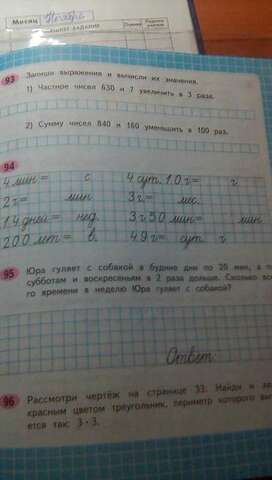 Месяц Ноябрь
ЗАДАНИЕ
Оценка
Подпись
93 Запиши выражения и вычисли их значения.
1) Частное чисел 630 и 7 увеличить в 3 раза.
2) Сумму чисел 840 и 160 уменьшить в 100 раз.
94
4 мин = с 4 сут. 10 г = г
2 г = мин 3 г = мес.
14 дней = нед. 3 г 50 мин = мин
200 лет = в. 49 г = сут г
95 Юра гуляет с собакой в будние дни по 20 мин, а по
субботам и воскресеньям в 2 раза дольше. Сколько
го времени в неделю Юра гуляет с собакой?
Ответ:
96 Рассмотри чертёж на странице 33. Найди и
красным цветом треугольник, периметр которого
ется так: 3 · 3.